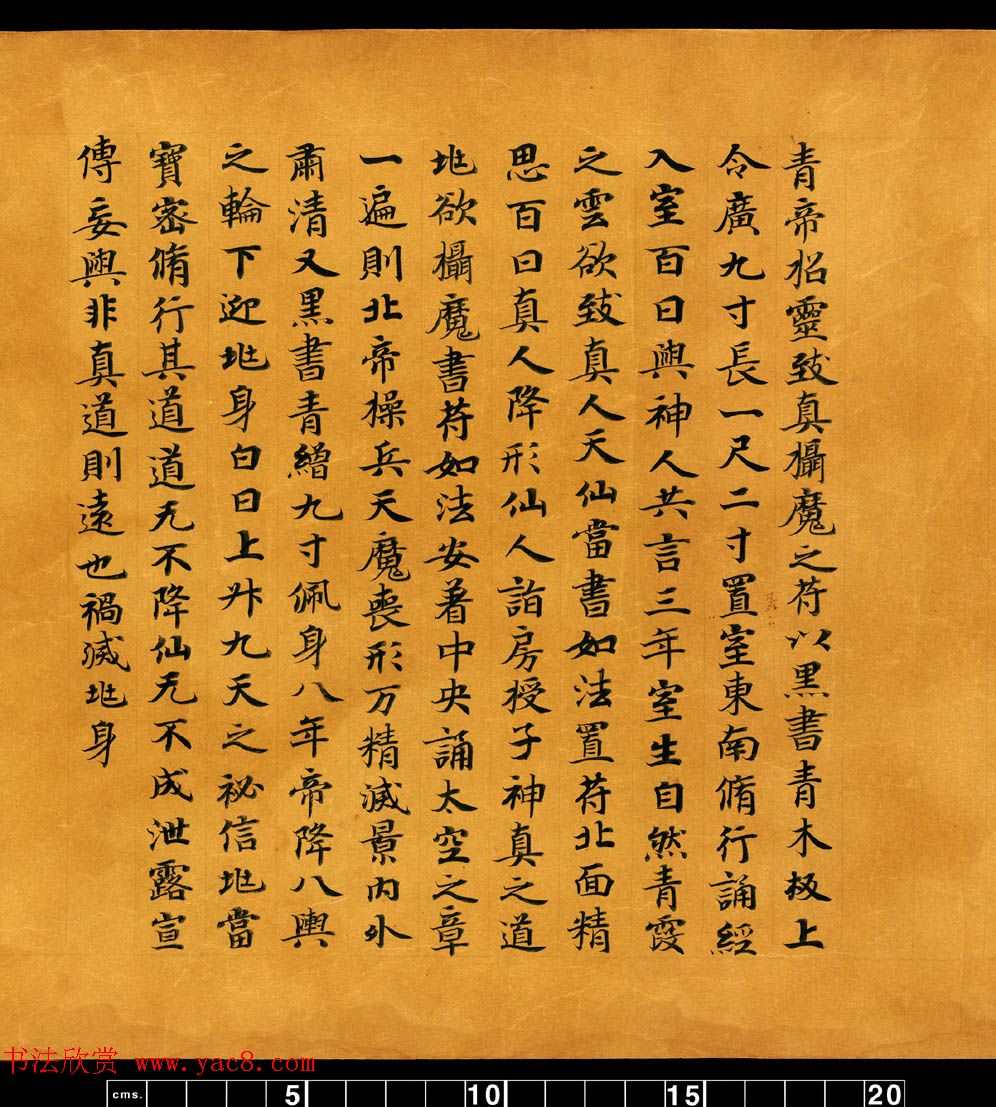 青帝招靈致真攝魔之苻以黑書青木板上
令廣九寸長一尺二寸置室東南脩行誦經
入室百日與神人共言三年室生自然青霞
之雲欲致真人天仙當書如法置苻北面精
思百日真人降形仙人詣房授子神真之道
地欲攝魔書苻如法安著中央誦太空之章
一遍則北帝操兵天魔喪形万精滅景内外
肅清又黑書青繒九寸佩身八年帝降八輿
之輪下迎地身白日上升九天之祕信地當
寶密脩行其道道无不降仙无不成泄露宣
傳妄與非真道則遠也禍滅地身
书法欣赏 www.yac8.com
cms. 5 10 15 20